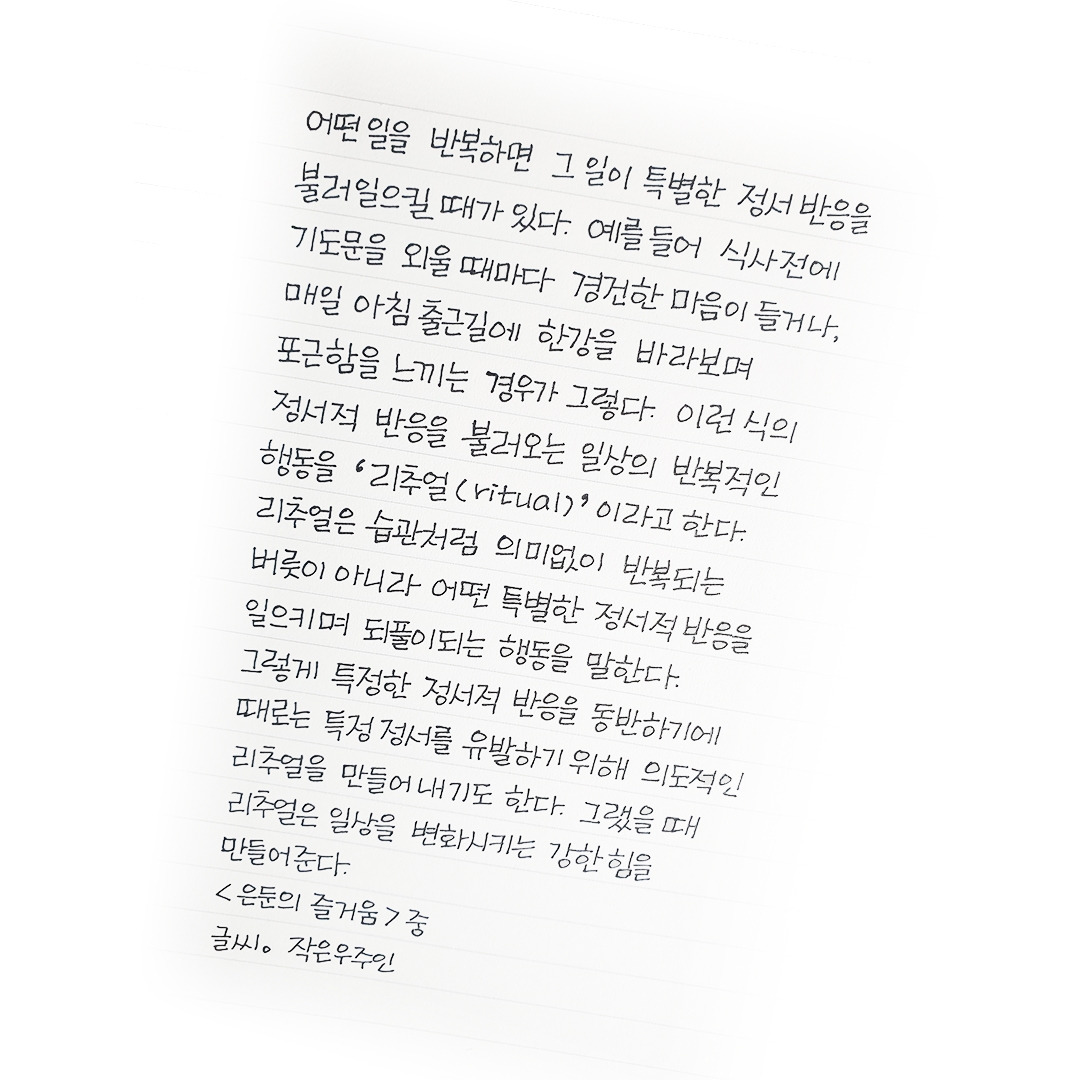 어떤 일을 반복하면 그 일이 특별한 정서 반응을
불러일으킬 때가 있다. 예를 들어 식사 전에
기도문을 외울 때마다 경건한 마음이 들거나,
매일 아침 출근길에 한강을 바라보며
포근함을 느끼는 경우가 그렇다. 이런 식의
정서적 반응을 불러오는 일상의 반복적인
행동을 ‘리추얼(ritual)’이라고 한다.
리추얼은 습관처럼 의미없이 반복되는
버릇이 아니라 어떤 특별한 정서적 반응을
일으키며 되풀이되는 행동을 말한다.
그렇게 특정한 정서적 반응을 동반하기에
때로는 특정 정서를 유발하기 위해 의도적인
리추얼을 만들어 내기도 한다. 그랬을 때
리추얼은 일상을 변화시키는 강한 힘을
만들어준다.
<은둔의 즐거움> 중
글씨。 작은우주인